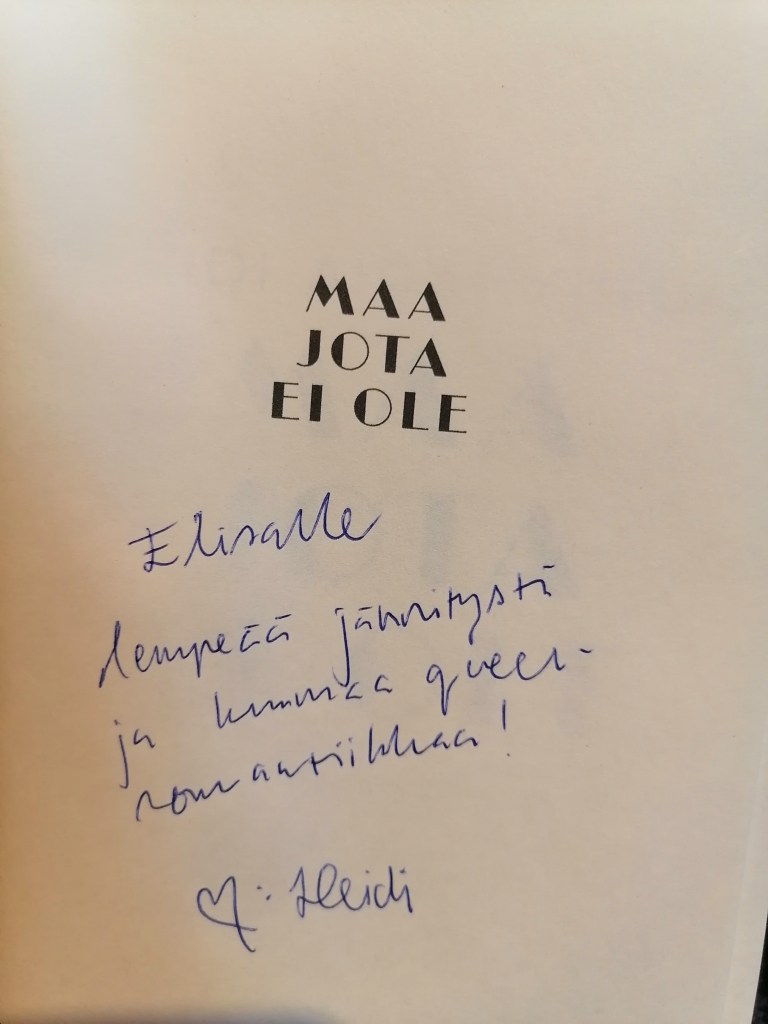 MAA
JOTA
EI OLE
Elisalle
lempeää jännitystä
ja kummaa queer-
romantiikkaa!
♡: Heidi